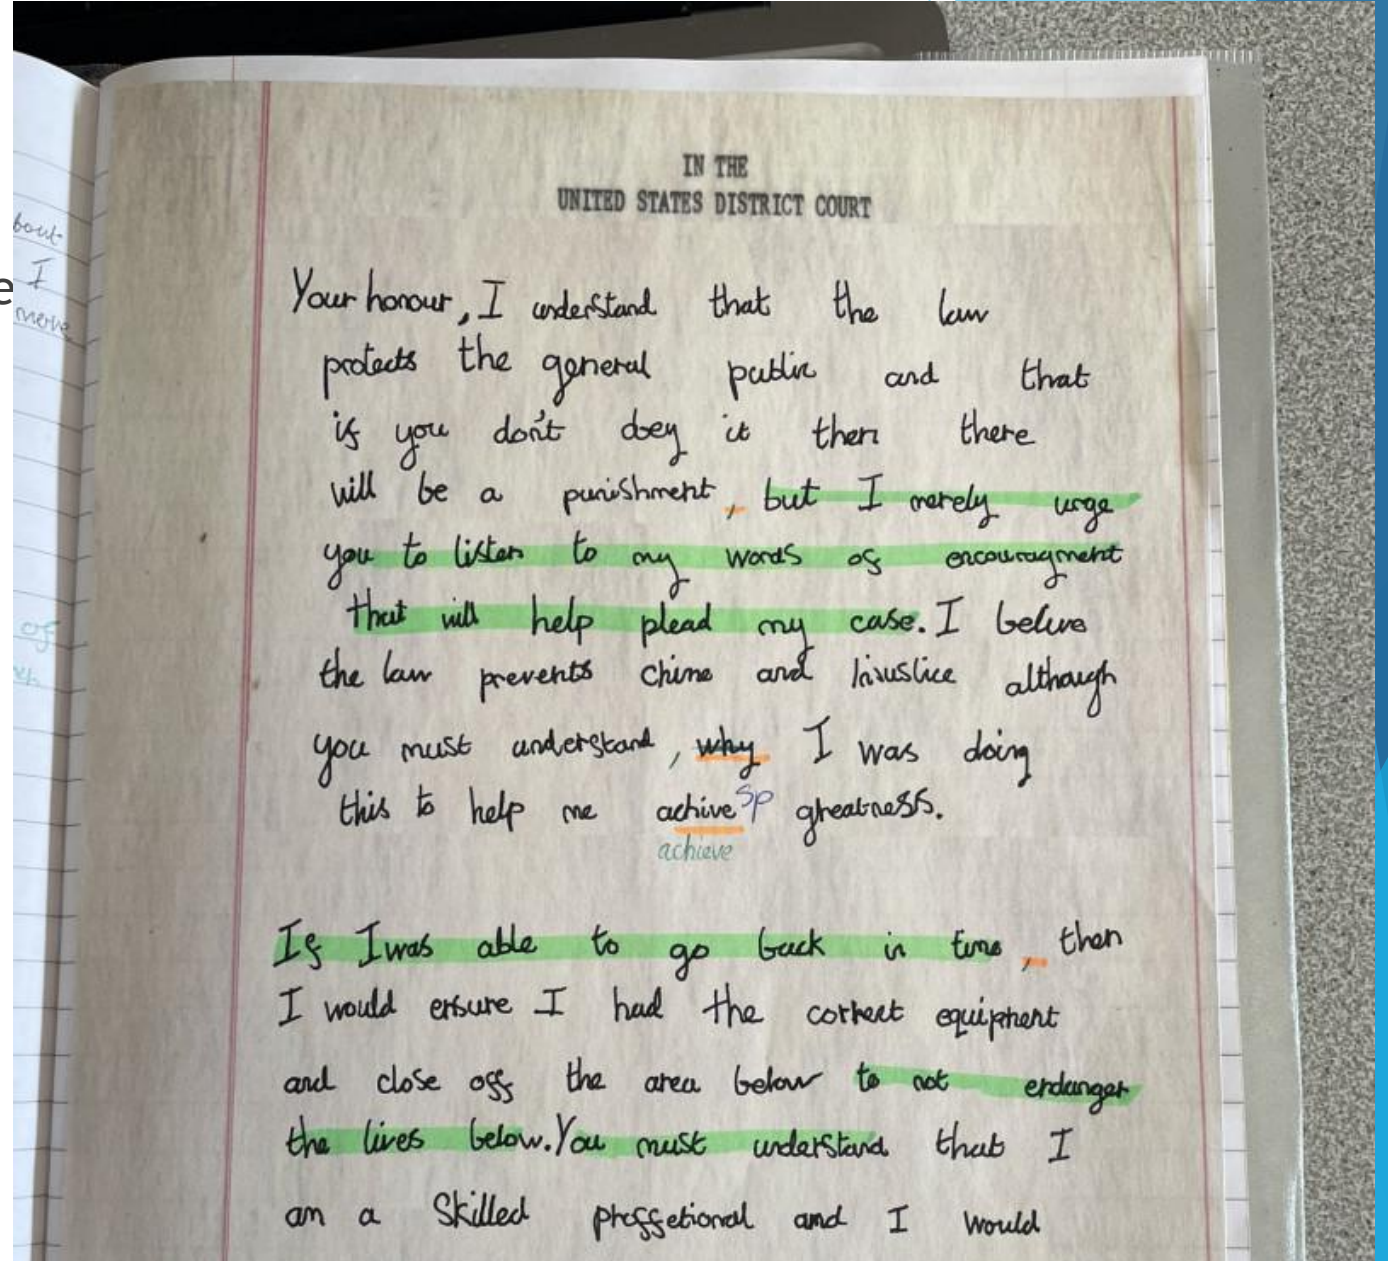 IN THE
UNITED STATES DISTRICT COURT
Your honour, I understand that the law
protects the general public and that
if you don't obey it then there
will be a punishment, but I merely urge
you to listen to my words of encouragment
that will help plead my case. I belive
the law prevents crime and injustice although
you must understand, why I was doing
this to help me achive sp greatness.
achieve
If I was able to go back in time, then
I would ensure I had the correct equipment
and close off the area below to not endanger
the lives below. You must understand that I
am a skilled proffetional and I would
bout
I
of
e